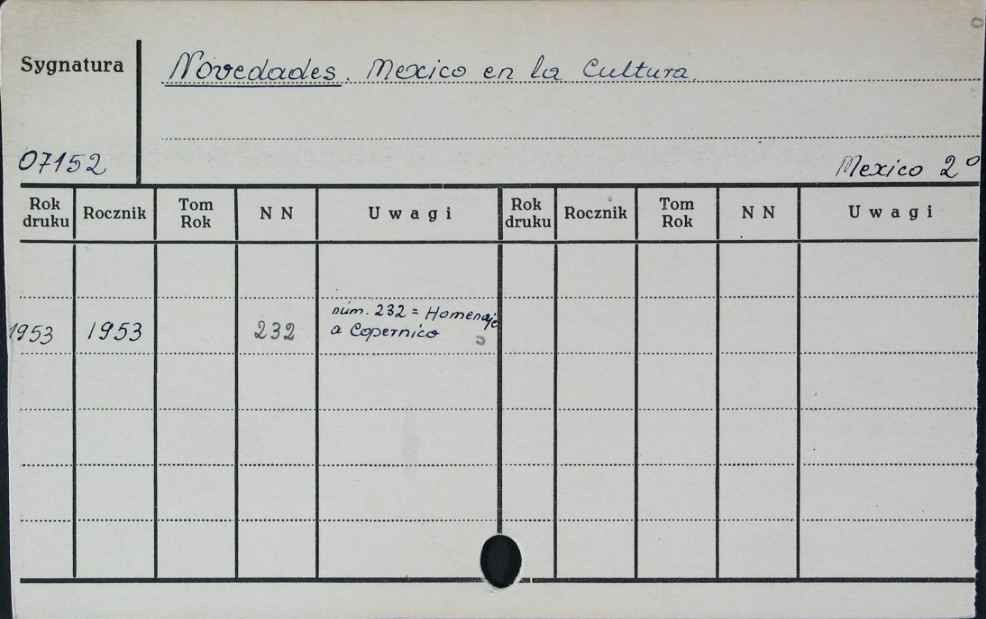 Sygnatura
Novedades. Mexico en la Cultura
07152
Mexico 2°
Rok druku Rocznik Tom Rok N N Uwagi Rok druku Rocznik Tom Rok N N Uwagi
1953 1953 232 núm. 232 = Homenaje
a Copernico